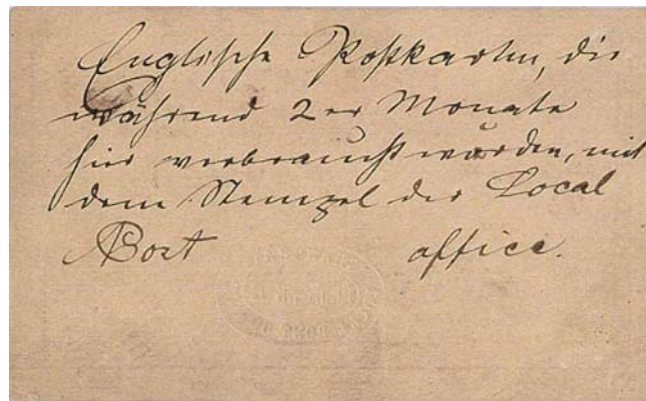 Englische Postkarten, die
während 2er Monate
hier verbraucht wurden, mit
dem Stempel der Local
Post office.